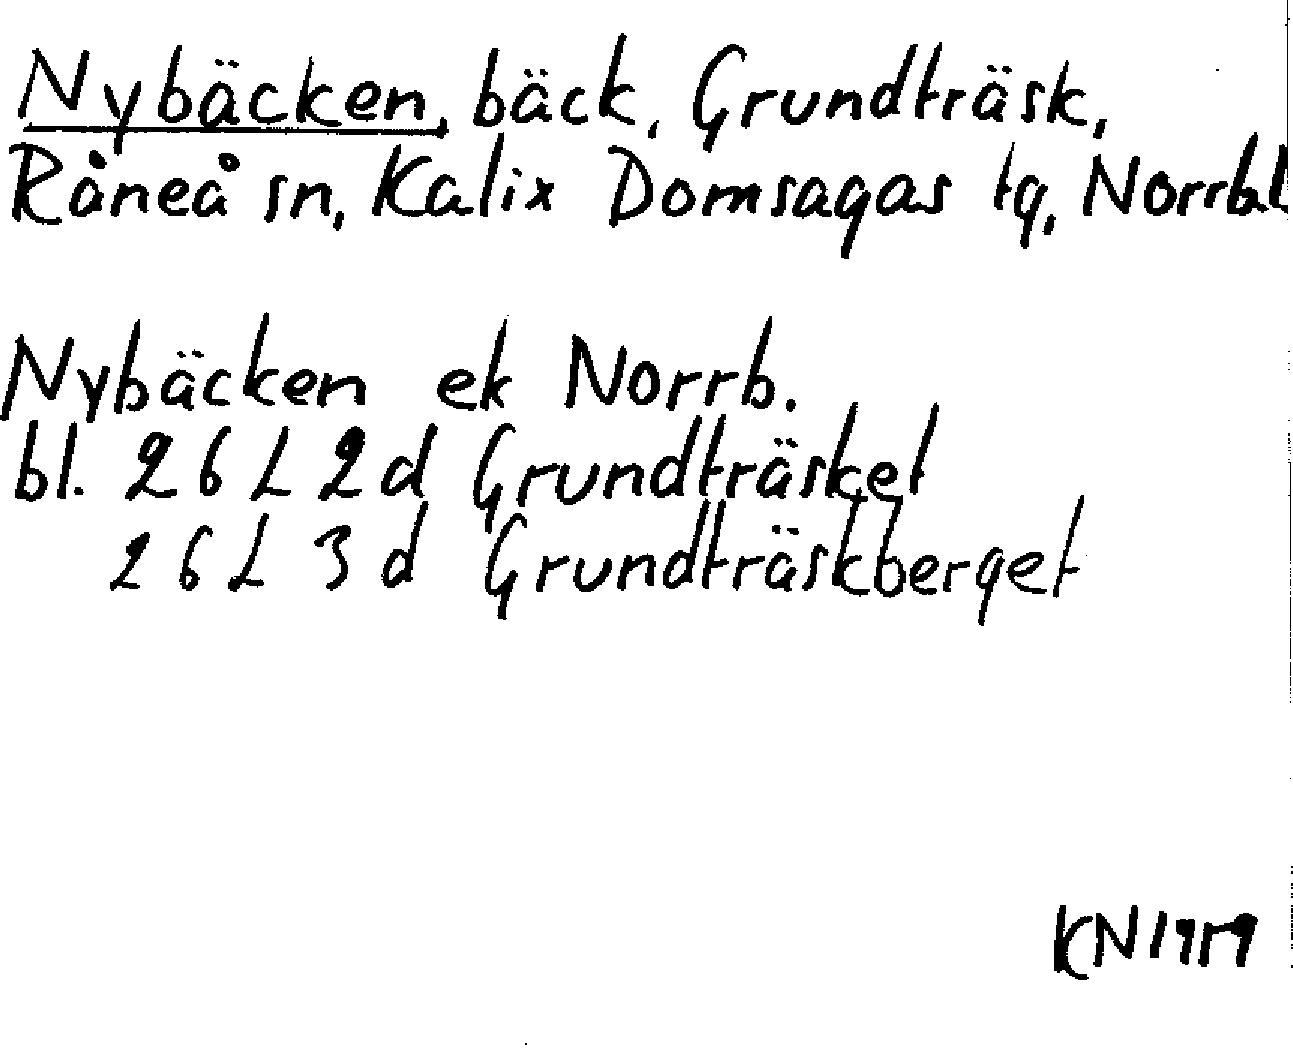 Nybäcken, bäck, Grundträsk,
Råneå sn, Kalix Domsagas tg, Norrbl
Nybäcken ek Norrb.
bl. 26 L 2 d Grundträsket
26 L 3 d Grundträskberget
KN